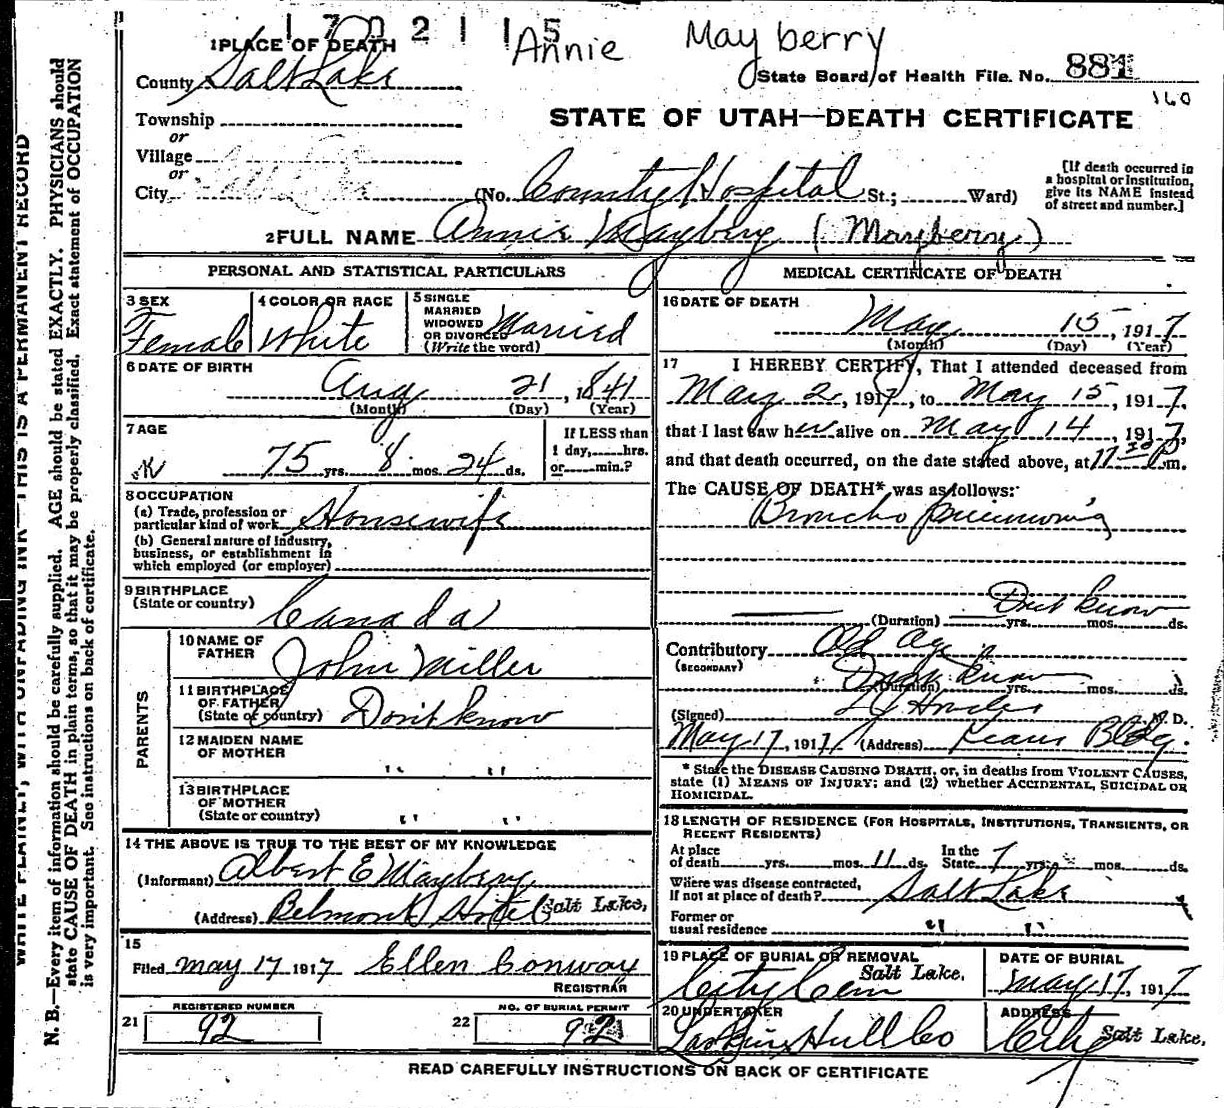 1702115
Annie Mayberry
1 PLACE OF DEATH
County Salt Lake
State Board of Health File. No. 881
160
Township
or
Village
or
City
STATE OF UTAH—DEATH CERTIFICATE
(No. County Hospital St.; Ward)
[If death occurred in
a hospital or institution,
give its NAME instead
of street and number.]
2 FULL NAME Annie Mayberry (Mayberry)
PERSONAL AND STATISTICAL PARTICULARS
3 SEX
Female
4 COLOR OR RACE
White
5 SINGLE
MARRIED
WIDOWED
OR DIVORCED
(Write the word)
Married
6 DATE OF BIRTH
Aug 21, 1841
(Month) (Day) (Year)
7 AGE
75 yrs. 8 mos. 24 ds.
If LESS than
1 day, hrs.
or min.?
8 OCCUPATION
(a) Trade, profession or
particular kind of work Housewife
(b) General nature of industry,
business, or establishment in
which employed (or employer)
9 BIRTHPLACE
(State or country) Canada
PARENTS
10 NAME OF
FATHER John Miller
11 BIRTHPLACE
OF FATHER
(State or country) Don't know
12 MAIDEN NAME
OF MOTHER " "
13 BIRTHPLACE
OF MOTHER
(State or country) " "
14 THE ABOVE IS TRUE TO THE BEST OF MY KNOWLEDGE
(Informant) Albert E Mayberry
(Address) Belmont Hotel Salt Lake,
15
Filed May 17 1917 Ellen Conway
REGISTRAR
REGISTERED NUMBER
21 92
NO. OF BURIAL PERMIT
22 92
MEDICAL CERTIFICATE OF DEATH
16 DATE OF DEATH
May 15, 1917
(Month) (Day) (Year)
17 I HEREBY CERTIFY, That I attended deceased from
May 2, 1917, to May 15, 1917,
that I last saw her alive on May 14, 1917,
and that death occurred, on the date stated above, at P.m.
The CAUSE OF DEATH* was as follows:
Broncho pneumonia
Don't know
(Duration) yrs. mos. ds.
Contributory Old Age
(SECONDARY)
Don't know
(Duration) yrs. mos. ds.
(Signed) M. D.
May 17, 1917 (Address) Kearns Bldg.
* State the DISEASE CAUSING DEATH, or, in deaths from VIOLENT CAUSES,
state (1) MEANS OF INJURY; and (2) whether ACCIDENTAL, SUICIDAL OR
HOMICIDAL.
18 LENGTH OF RESIDENCE (FOR HOSPITALS, INSTITUTIONS, TRANSIENTS, OR
RECENT RESIDENTS)
At place
of death yrs. mos. 11 ds.
In the
State 7 yrs. mos. ds.
Where was disease contracted,
If not at place of death? Salt Lake
Former or
usual residence " "
19 PLACE OF BURIAL OR REMOVAL
City Cem Salt Lake.
DATE OF BURIAL
May 17, 1917
20 UNDERTAKER
Larkin Hull Co
ADDRESS
City Salt Lake.
READ CAREFULLY INSTRUCTIONS ON BACK OF CERTIFICATE
WRITE PLAINLY, WITH UNFADING INK—THIS IS A PERMANENT RECORD
N. B.—Every item of information should be carefully supplied. AGE should be stated EXACTLY. PHYSICIANS should
state CAUSE OF DEATH in plain terms, so that it may be properly classified. Exact statement of OCCUPATION
is very important. See instructions on back of certificate.